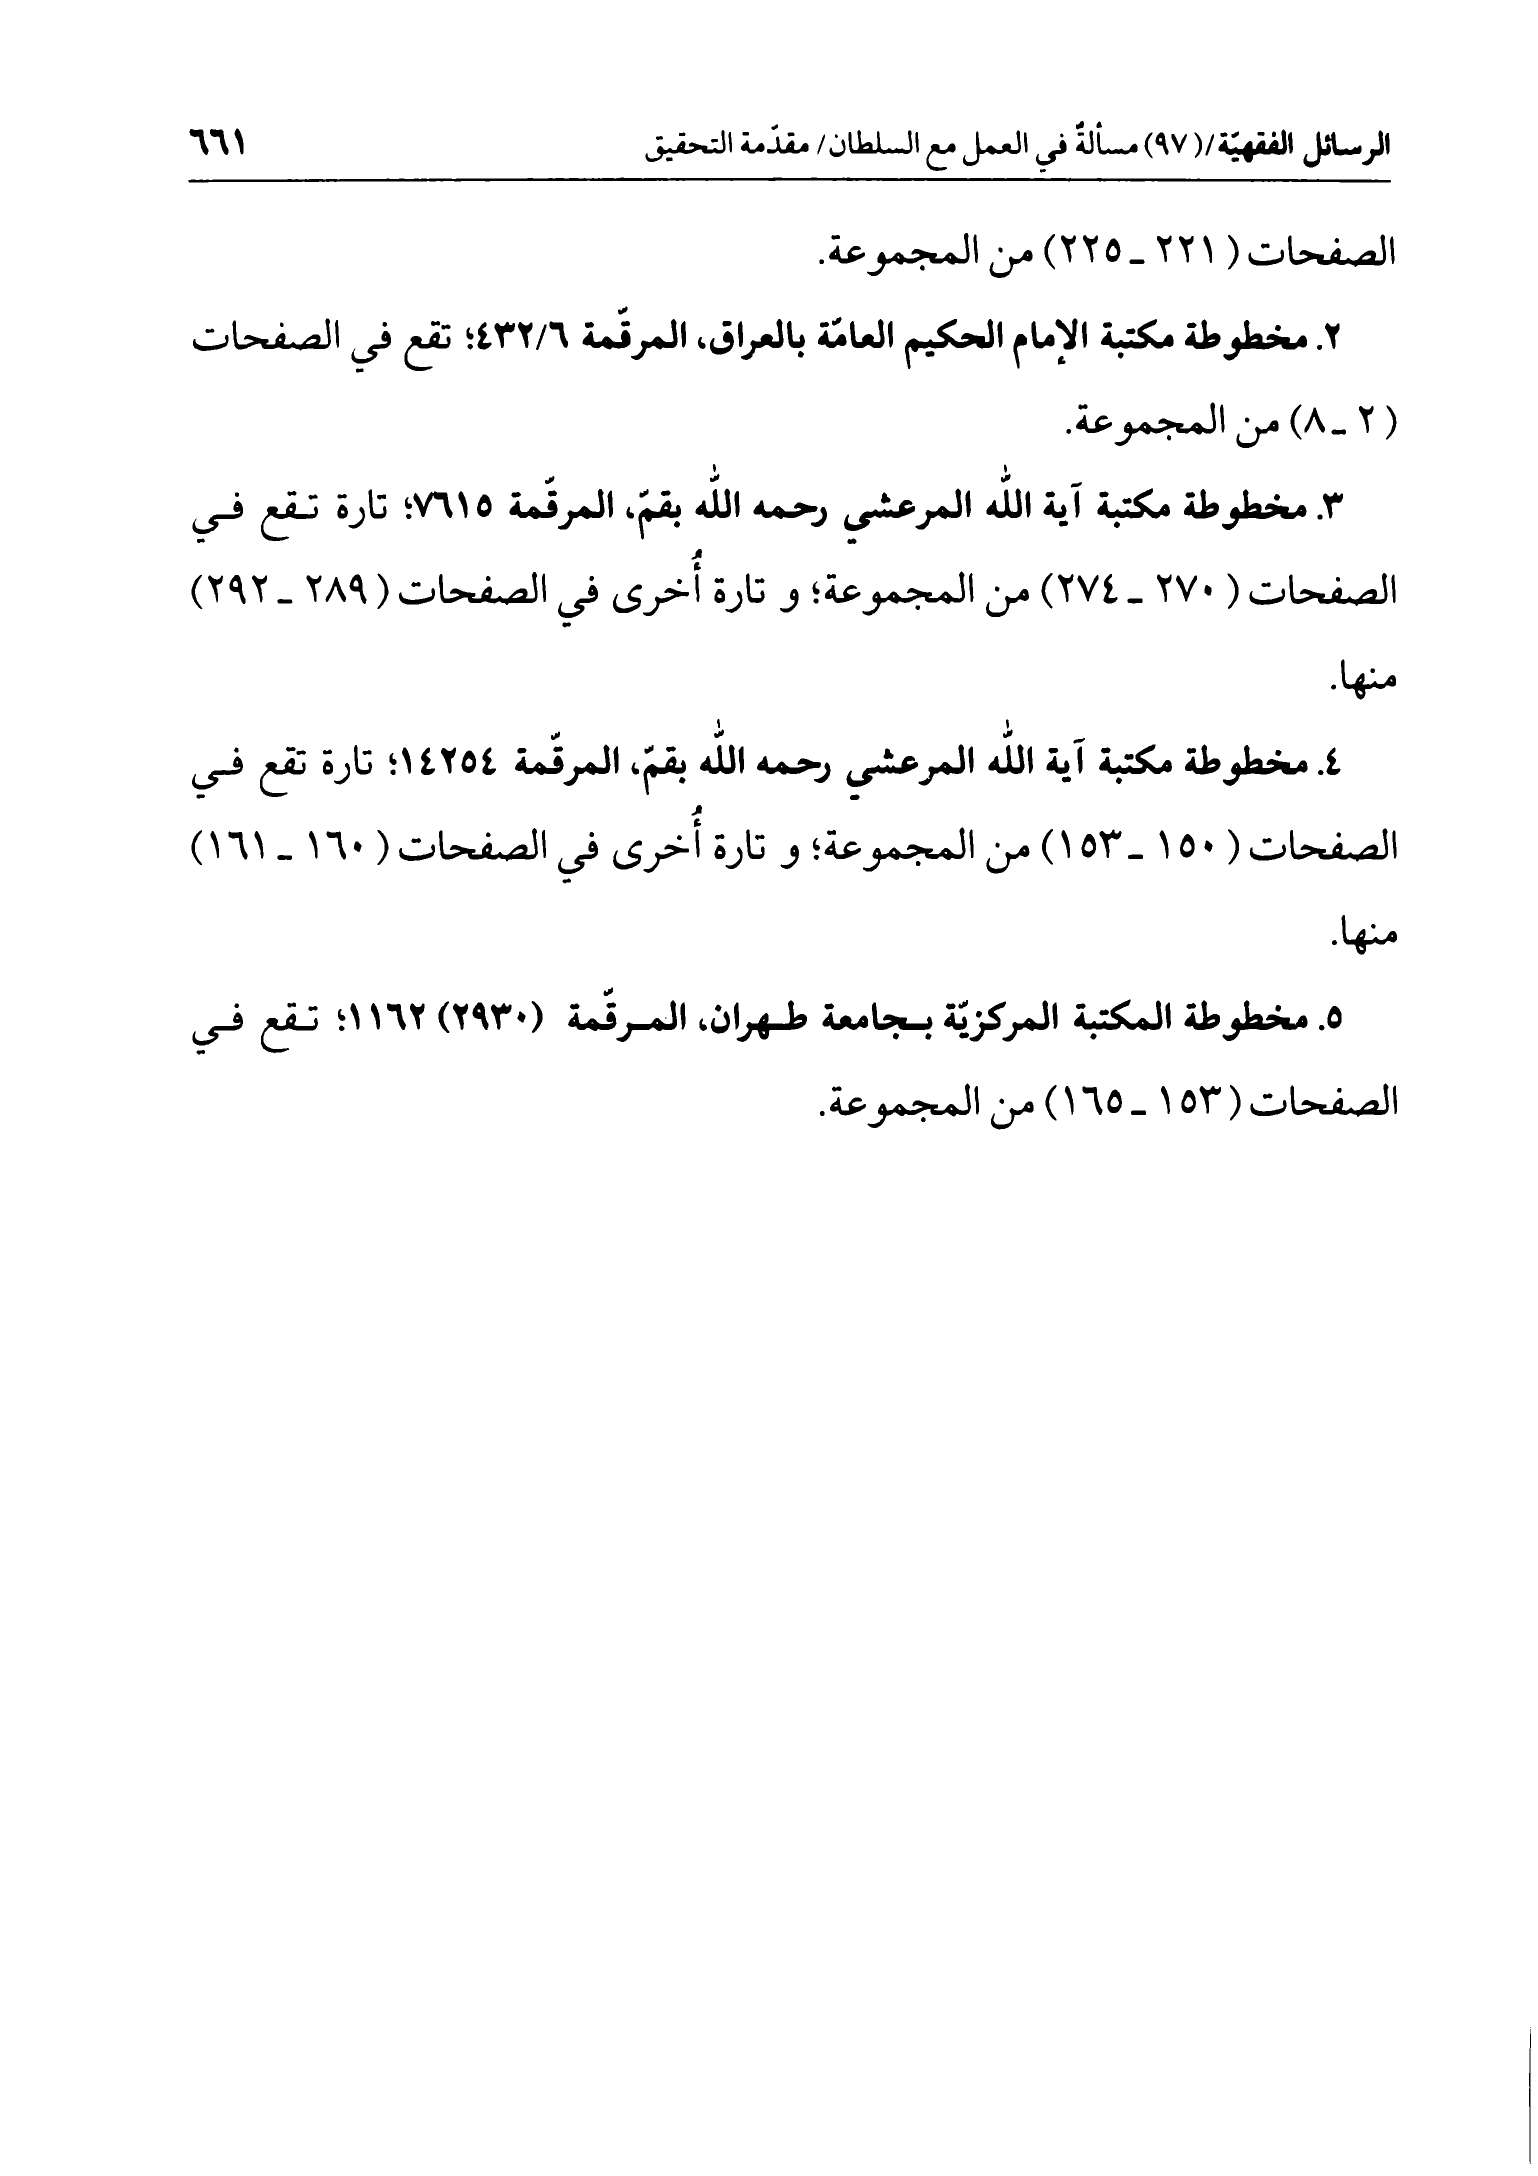 الرسائل الفقهيّة/(٩٧) مسألةٌ في العمل مع السلطان/ مقدّمة التحقيق ٦٦١
الصفحات (٢٢١ ـ ٢٢٥) من المجموعة.
٢. مخطوطة مكتبة الإمام الحكيم العامّة بالعراق، المرقّمة ٤٣٢/٦؛ تقع في الصفحات
(٢ ـ ٨) من المجموعة.
٣. مخطوطة مكتبة آية اللّٰه المرعشي رحمه اللّٰه بقمّ، المرقّمة ٧٦١٥؛ تارة تقع في
الصفحات (٢٧٠ ـ ٢٧٤) من المجموعة؛ و تارة أُخرى في الصفحات (٢٨٩ ـ ٢٩٢)
منها.
٤. مخطوطة مكتبة آية اللّٰه المرعشي رحمه اللّٰه بقمّ، المرقّمة ١٤٢٥٤؛ تارة تقع في
الصفحات (١٥٠ ـ ١٥٣) من المجموعة؛ و تارة أُخرى في الصفحات (١٦٠ ـ ١٦١)
منها.
٥. مخطوطة المكتبة المركزيّة بجامعة طهران، المرقّمة (٢٩٣٠) ١١٦٢؛ تقع في
الصفحات (١٥٣ ـ ١٦٥) من المجموعة.